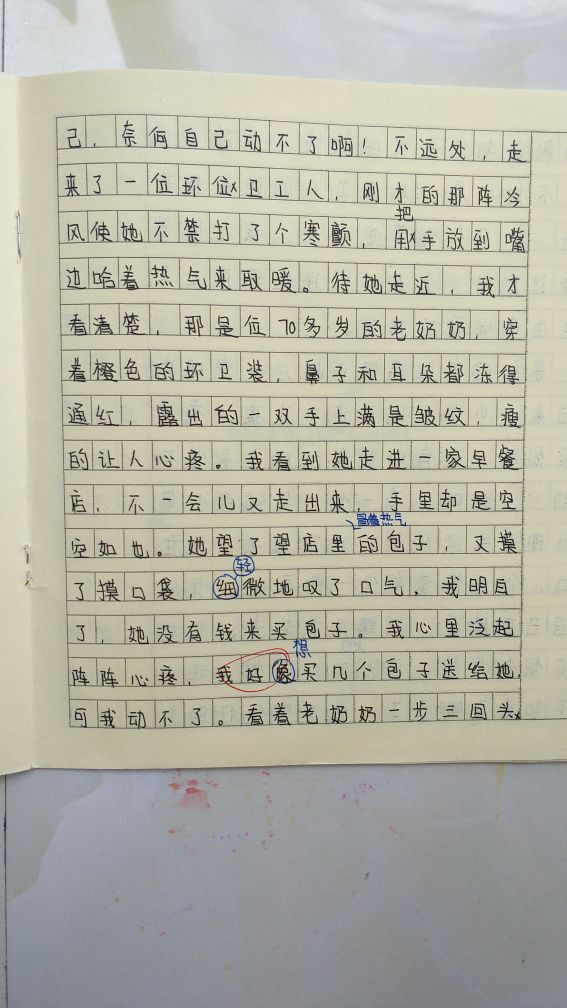 己，奈何自己动不了啊！不远处，走
来了一位环位卫工人，刚才的那阵冷
把
风使她不禁打了个寒颤，用手放到嘴
边哈着热气来取暖。待她走近，我才
看清楚，那是位70多岁的老奶奶，穿
着橙色的环卫装，鼻子和耳朵都冻得
通红，露出的一双手上满是皱纹，瘦
的让人心疼。我看到她走进一家早餐
店，不一会儿又走出来，手里却是空
冒着热气
空如也。她望了望店里的包子，又摸
轻
了摸口袋，细微地叹了口气。我明白
了，她没有钱来买包子。我心里泛起
想
阵阵心疼，我好像买几个包子送给她，
可我动不了。看着老奶奶一步三回头